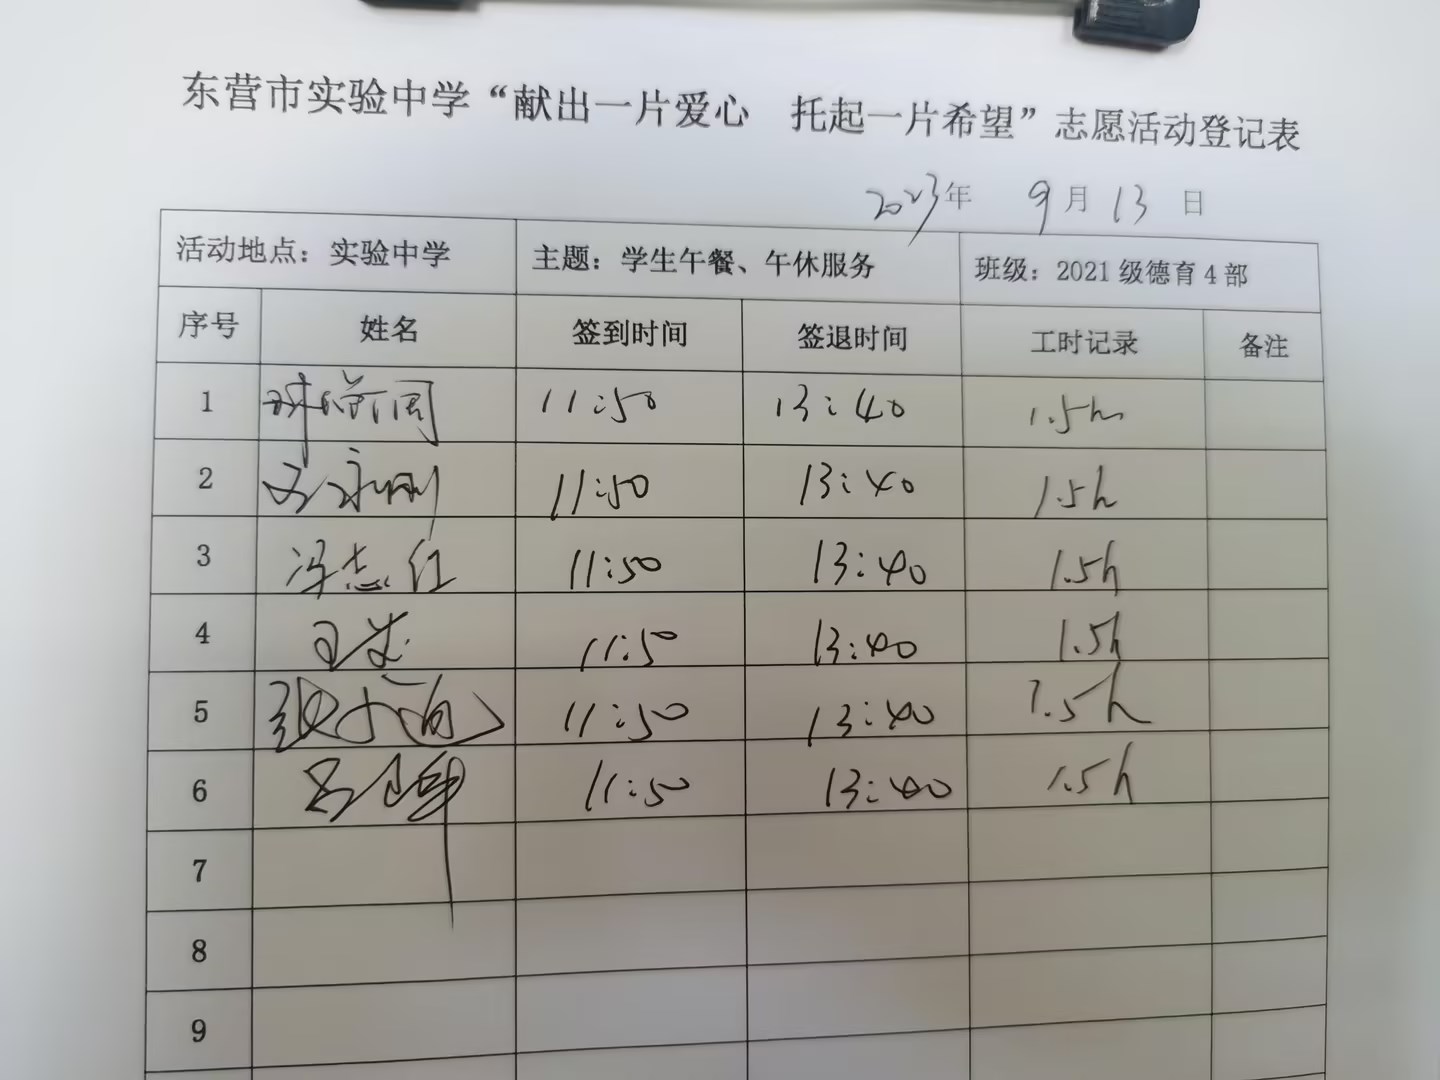 东营市实验中学“献出一片爱心 托起一片希望”志愿活动登记表
2023年 9月13日
活动地点：实验中学 主题：学生午餐、午休服务 班级：2021级德育4部
序号 姓名 签到时间 签退时间 工时记录 备注
1 11:50 13:40 1.5h
2 11:50 13:40 1.5h
3 冯志红 11:50 13:40 1.5h
4 11:50 13:40 1.5h
5 11:50 13:40 1.5h
6 11:50 13:40 1.5h
7
8
9